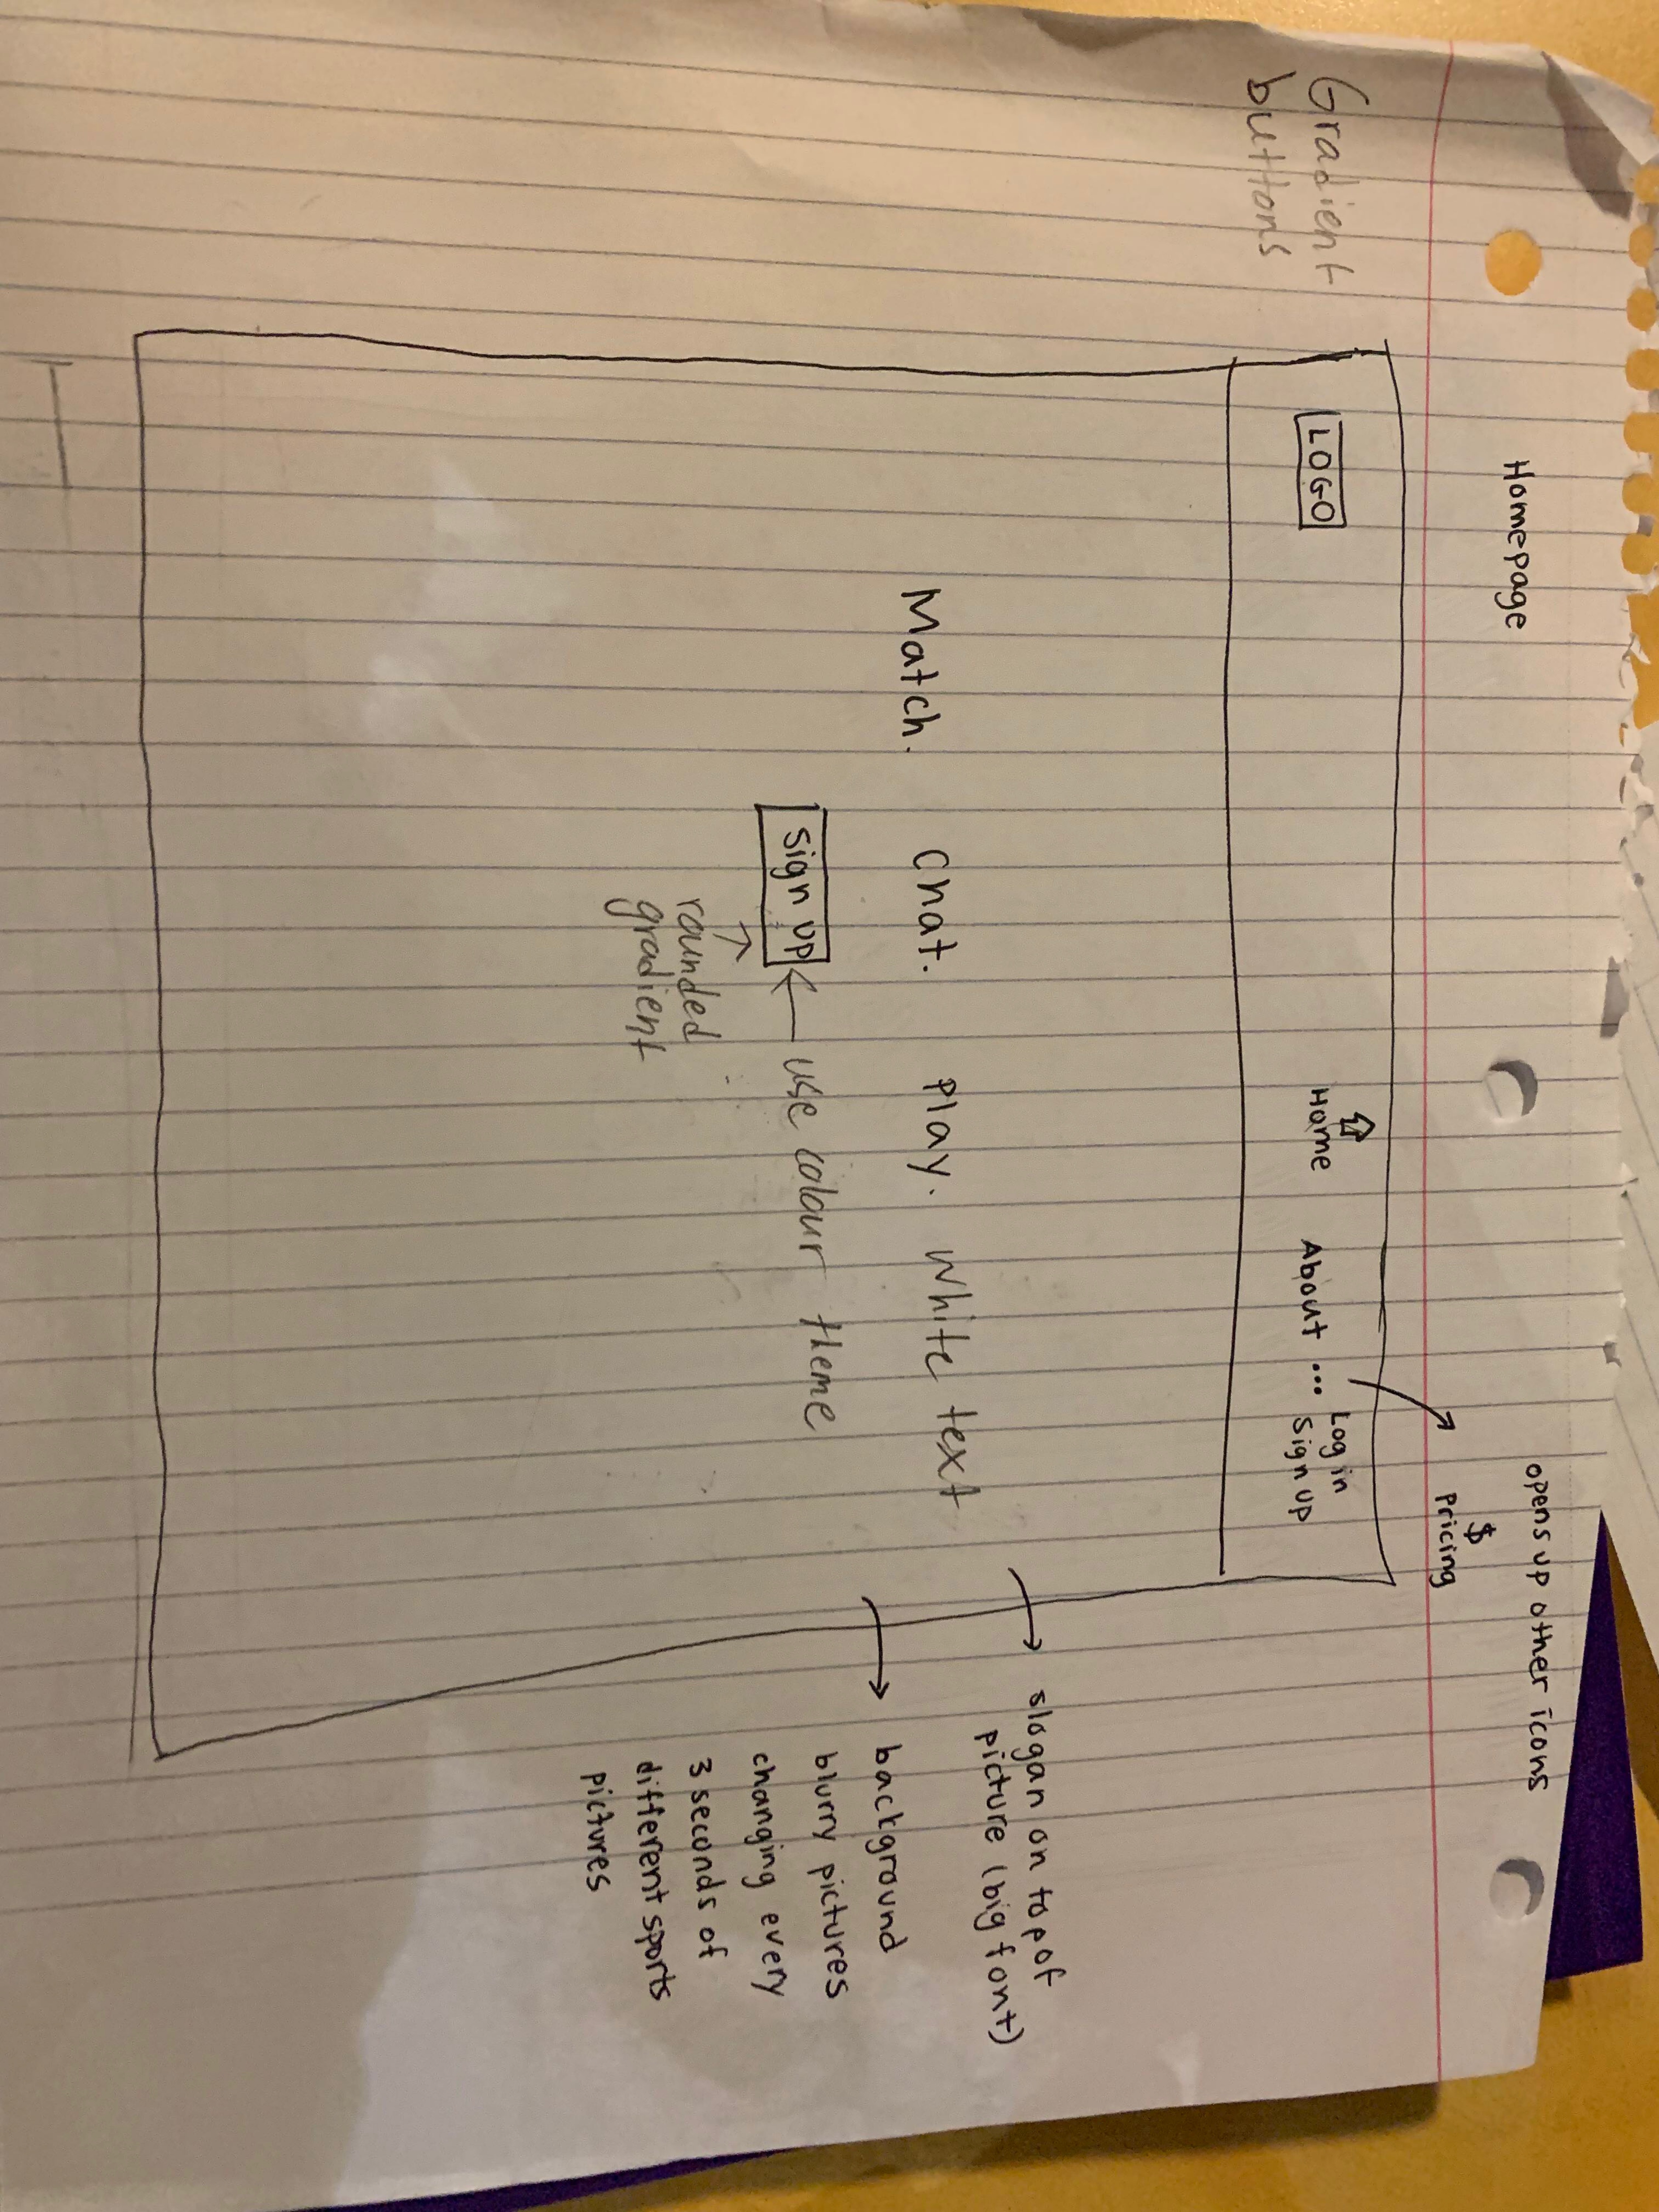 Homepage
opens up other icons
$
Pricing
Gradient
buttons
LOGO
Home
About ...
Log in
Sign up
Match. Chat. Play. White text
slogan on top of
picture (big font)
Sign up
use colour theme
rounded
gradient
background
blurry pictures
changing every
3 seconds of
different sports
pictures